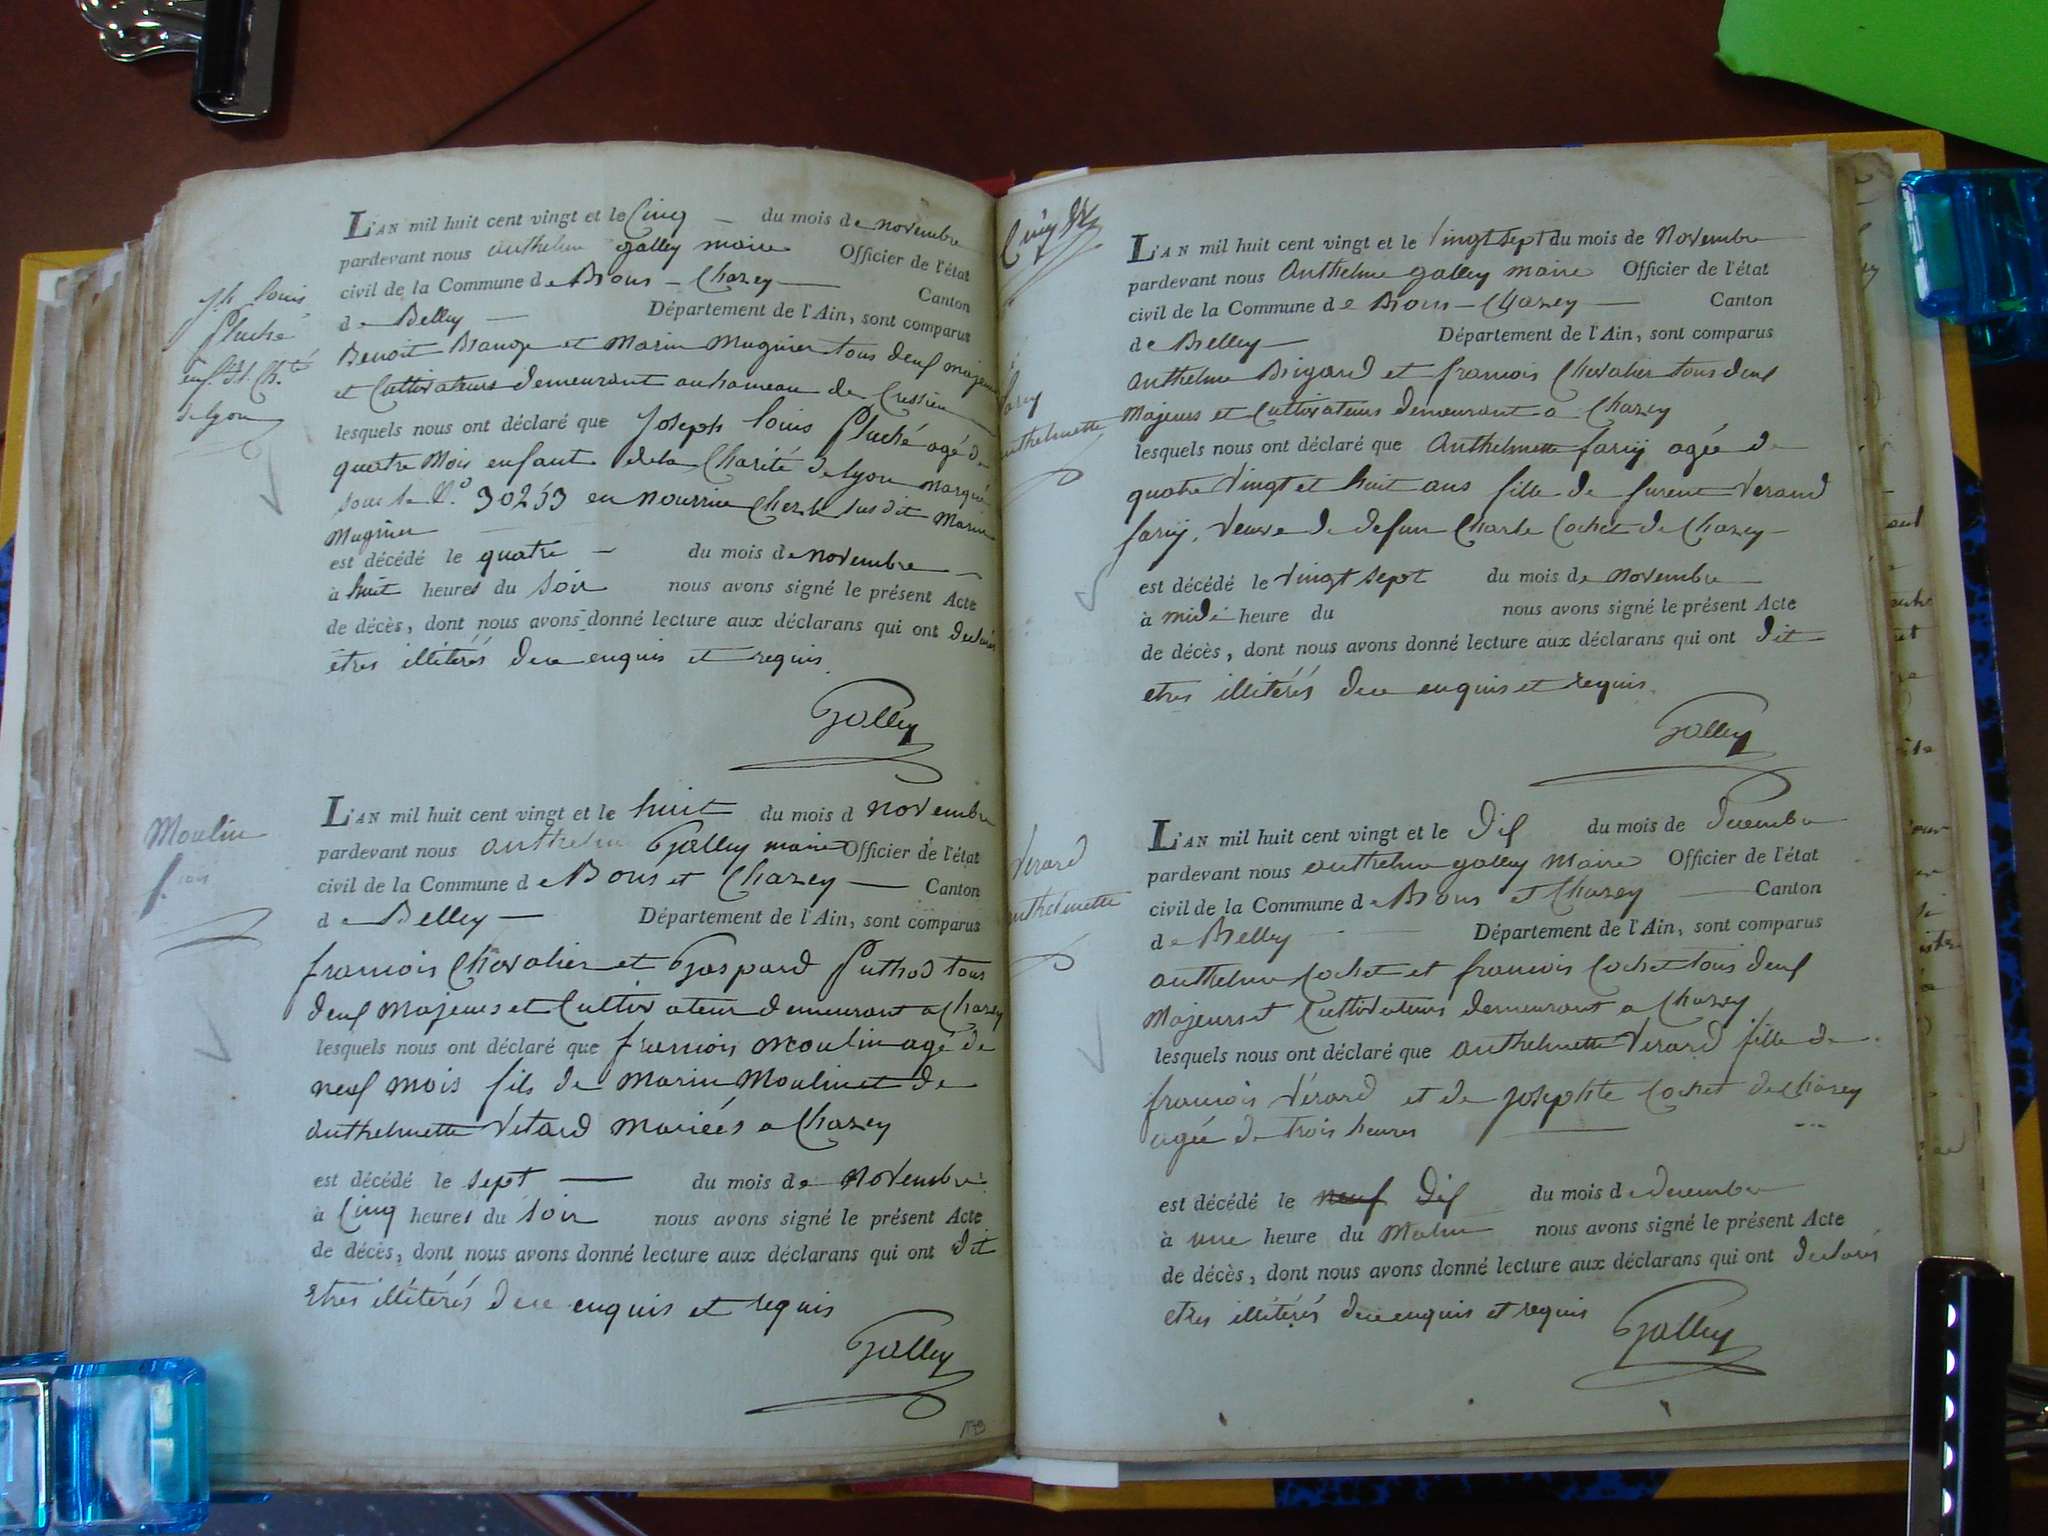 L'AN mil huit cent vingt et le Cinq — du mois de novembre
pardevant nous anthelme galley maire Officier de l'état
civil de la Commune de Brons - Chazey — Canton
de Belley — Département de l'Ain, sont comparus
Benoit et Marin Mugnier tous deux majeurs
et Cultivateurs demeurant au hameau de Cressieu
lesquels nous ont déclaré que Joseph louis Pluché agé de
quatre Mois enfant de la Charité de lyon marqué
sous le N.o 30253 en nourrice Chez le susdit Marin
Mugnier
est décédé le quatre — du mois de novembre —
à huit heures du soir nous avons signé le présent Acte
de décès, dont nous avons donné lecture aux déclarans qui ont declarés
etres illiterés de ce enquis et requis.
Galley
jh. louis
Pluché
enf. d. Ch.té
de lyon
L'AN mil huit cent vingt et le huit du mois d novembre
pardevant nous anthelme Galley maire Officier de l'état
civil de la Commune de Bons et Chazey — Canton
de Belley — Département de l'Ain, sont comparus
francois Chevalier et Gaspard Puthod tous
deux majeurs et Cultivateur demeurant a Chazey
lesquels nous ont déclaré que francois moulin agé de
neuf mois fils de Marin Moulin et de
anthelmette Vetard mariées a Chazey
est décédé le sept — du mois de Novembre
à Cinq heures du soir nous avons signé le présent Acte
de décès, dont nous avons donné lecture aux déclarans qui ont dit
etres illiterés de ce enquis et requis
Galley
Moulin
f.cois
L'AN mil huit cent vingt et le Vingt sept du mois de Novembre
pardevant nous Anthelme galley maire Officier de l'état
civil de la Commune de Bons - Chazey — Canton
de Belley — Département de l'Ain, sont comparus
anthelme Brigard et francois Chevalier tous deux
Majeurs et Cultivateurs demeurant a Chazey
lesquels nous ont déclaré que Anthelmette farij agée de
quatre Vingt et huit ans fille de furent Verand
farij, Veuve de defun Charle Cochet de Chazey —
est décédé le Vingt sept du mois de novembre
à midi heure du nous avons signé le présent Acte
de décès, dont nous avons donné lecture aux déclarans qui ont dit
etres illiterés de ce enquis et requis.
Galley
farij
anthelmette
L'AN mil huit cent vingt et le Dix du mois de Decembre
pardevant nous anthelme galley Maire Officier de l'état
civil de la Commune de Bons et Chazey — Canton
de Belley Département de l'Ain, sont comparus
anthelme Cochet et francois Cochet tous deux
Majeurs et Cultivateurs demeurant a Chazey
lesquels nous ont déclaré que anthelmette Verard fille de
francois Vérard et de Josephte Cochet de Chazey
agée de trois heures —
est décédé le neuf Dix du mois de decembre
à une heure du Matin nous avons signé le présent Acte
de décès, dont nous avons donné lecture aux déclarans qui ont declarés
etres illiterés de ce enquis et requis
Galley
Verard
anthelmette